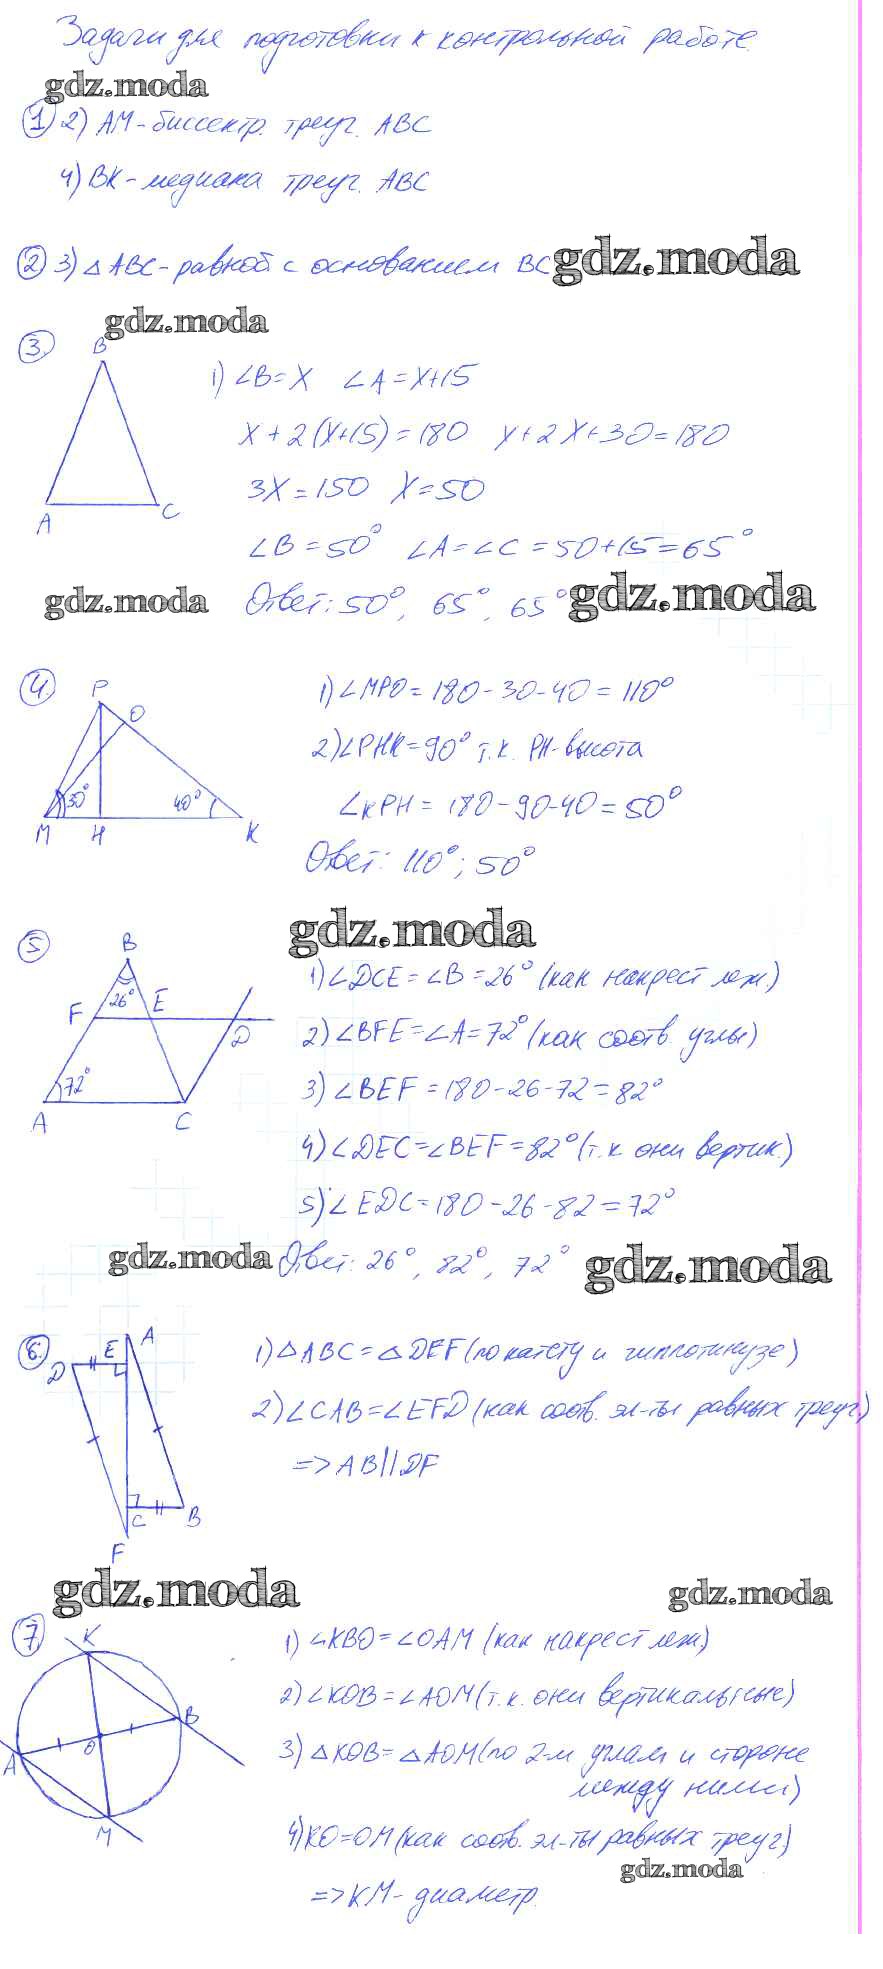 Задачи для подготовки к контрольной работе.
gdz.moda
1 2) AM - биссектр. треуг. ABC
4) BK - медиана треуг. ABC
2 3) △ ABC - равноб с основанием BC
gdz.moda
gdz.moda
3.
B
A
C
1) ∠B = X ∠A = X+15
X + 2(X+15) = 180 X + 2X + 30 = 180
3X = 150 X = 50
∠B = 50° ∠A = ∠C = 50+15 = 65°
gdz.moda
Ответ: 50°, 65°, 65°
gdz.moda
4.
P
O
30°
40°
M
H
K
1) ∠MPO = 180 - 30 - 40 = 110°
2) ∠PHK = 90° т.к. PH - высота
∠KPH = 180 - 90 - 40 = 50°
Ответ: 110°; 50°
gdz.moda
5
B
26°
F
E
D
72°
A
C
1) ∠DCE = ∠B = 26° (как накрест леж.)
2) ∠BFE = ∠A = 72° (как соотв. углы)
3) ∠BEF = 180 - 26 - 72 = 82°
4) ∠DEC = ∠BEF = 82° (т.к они вертик.)
5) ∠EDC = 180 - 26 - 82 = 72°
gdz.moda
Ответ: 26°, 82°, 72°
gdz.moda
6.
D
E
A
C
B
F
1) △ABC = △DEF (по катету и гиппотинузе)
2) ∠CAB = ∠EFD (как соотв. эл-ты равных треуг.)
=> AB || DF
gdz.moda
gdz.moda
7.
K
B
O
A
M
1) ∠KBO = ∠OAM (как накрест леж.)
2) ∠KOB = ∠AOM (т.к. они вертикальные)
3) △KOB = △AOM (по 2-м углам и стороне
между ними)
4) KO = OM (как соотв. эл-ты равных треуг.)
gdz.moda
=> KM - диаметр.